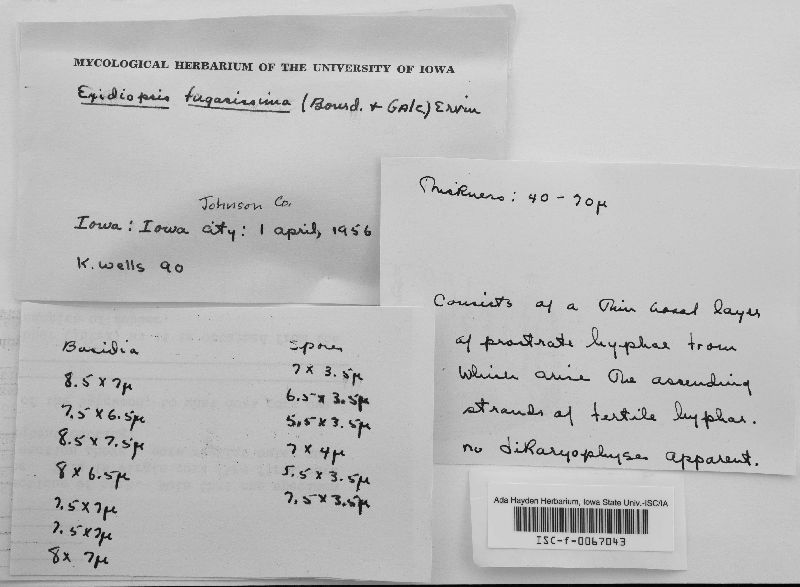 MYCOLOGICAL HERBARIUM OF THE UNIVERSITY OF IOWA
Exidiopsis fugacissima (Bourd. + Galz.) Ervin
Johnson Co.
Iowa: Iowa city: 1 april, 1956
K. Wells 90
Thickness: 40 - 70μ
Consists of a thin basal layer
of prostrate hyphae from
which arise the ascending
strands of fertile hyphae.
no dikaryophyses apparent.
Basidia
8.5 x 7μ
7.5 x 6.5μ
8.5 x 7.5μ
8 x 6.5μ
7.5 x 7μ
7.5 x 7μ
8 x 7μ
Spores
7 x 3.5μ
6.5 x 3.5μ
5.5 x 3.5μ
7 x 4μ
5.5 x 3.5μ
7.5 x 3.5μ
Ada Hayden Herbarium, Iowa State Univ.-ISC/IA
ISC-f-0067043